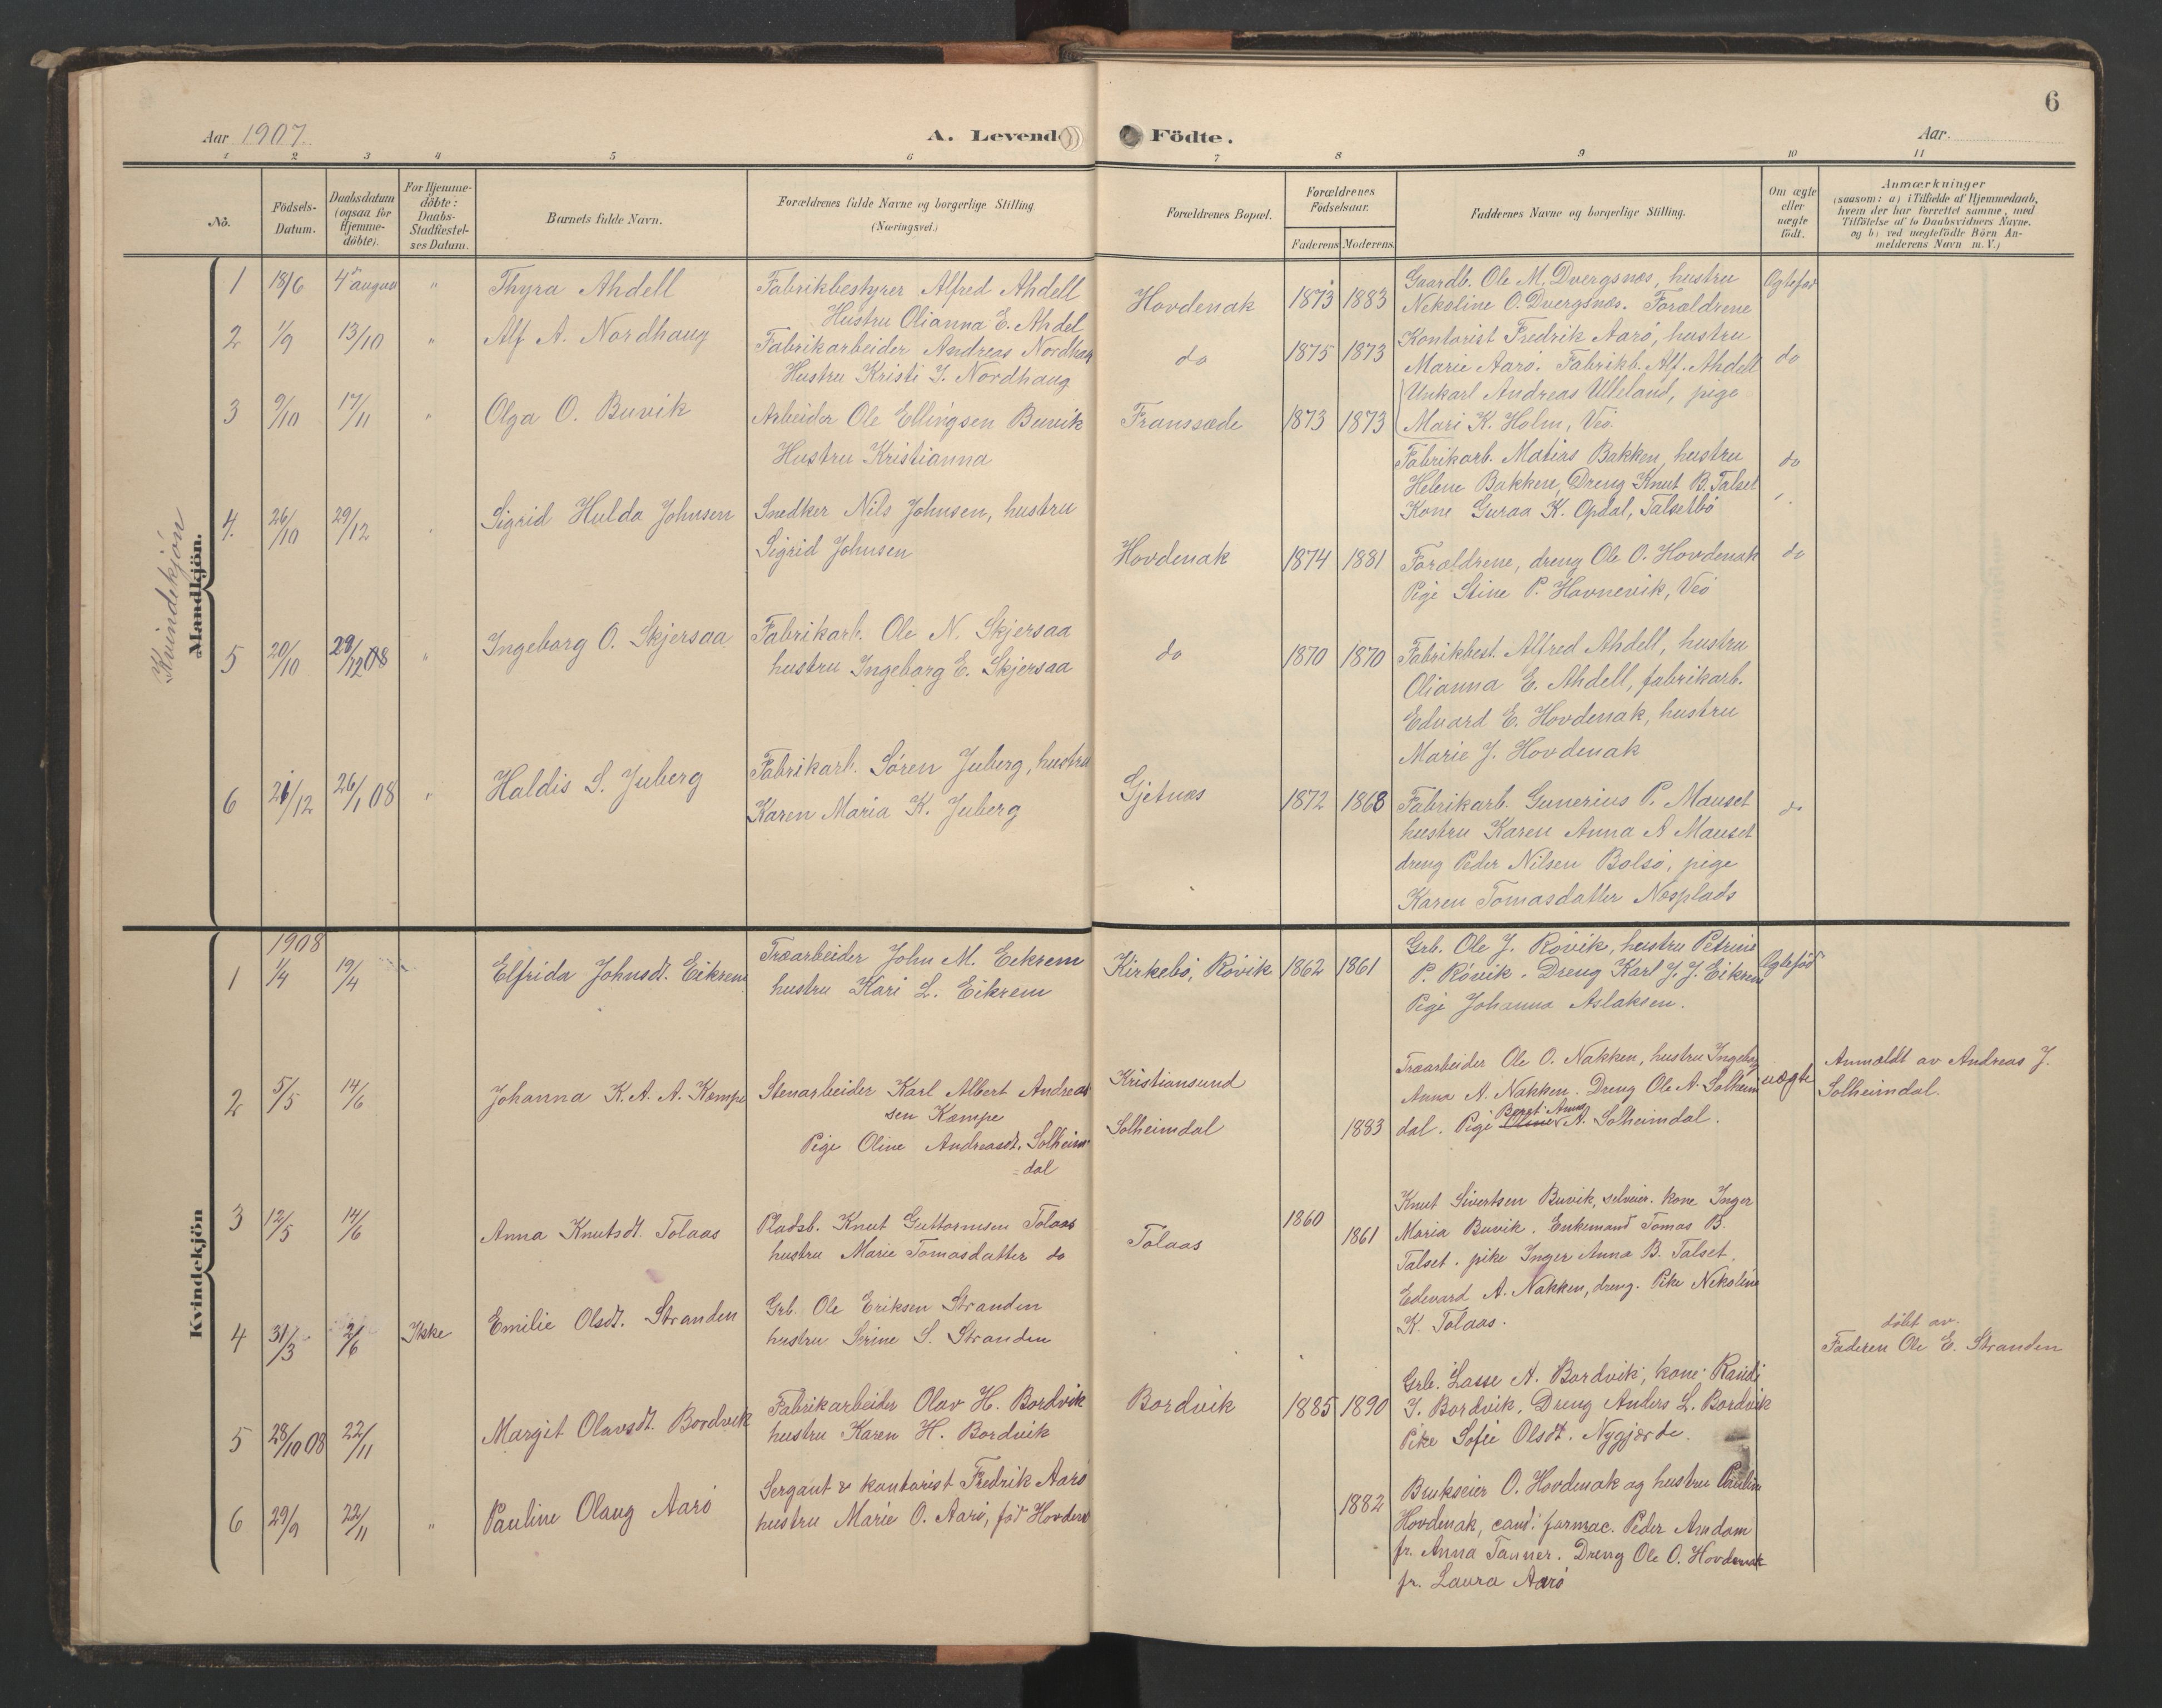 6
Aar 1907.
A. Levende
Födte.
Aar
1 2 3 4 5 6 7 8 9 10 11
No.
Födsels-
Datum.
Daabsdatum
(ogsaa for
Hjemme-
döbte).
For Hjemme-
döbte:
Daabs-
Stadfæstel-
ses Datum.
Barnets fulde Navn.
Forældrenes fulde Navne og borgerlige Stilling
(Næringsvei.)
Forældrenes Bopæl.
Forældrenes
Födselsaar.
Faderens
Moderens
Faddernes Navne og borgerlige Stilling.
Om ægte
eller
uægte
födt.
Anmærkninger
(saasom: a) i Tilfælde af Hjemmedaab,
hvem der har forrettet samme, med
Tilföielse af to Daabsvidners Navne.
og b) ved uægtefödte Börn An-
melderens Navn m. V.)
Kvindekjön
Mandkjön.
1 18/6 4de august " Thyra Ahdell
Fabrikbestyrer Alfred Ahdell
Hustru Olianna E. Ahdel
Hovdenak 1873 1883
Gaardb. Ole M. Dvergsnæs, hustru
Nekoline O. Dvergsnæs. Foraldrene
Ægtefød
2 1/9 13/10 " Alf A. Nordhaug
Fabrikarbeider Andreas Nordhau
Hustru Kristi J. Nordhaug
do 1875 1873
Kontorist Fredrik Aarö, hustru
Marie Aarö. Fabrikb. Alf. Ahdell
do
3 9/10 17/11 " Olga O. Buvik
Arbeider Ole Ellingsen Buvik
Hustru Kristianna
Franssæde 1873 1873
Unkarl Andreas Ulleland, pige
Mari K. Holm, Veö.
Fabrikarb. Matias Bakken, hustru
Helene Bakken, Dreng Knut B. Talset
Kone Guraa K. Opdal, Talsetbö
do
4. 26/10 29/12 Sigrid Hulda Johnsen
Snedker Nils Johnsen, hustru
Sigrid Johnsen
Hovdenak 1874 1881
Foraldrene, dreng Ole O. Hovdenak
Pige Stine P. Havnevik, Veö
do
5 20/10 29/12 08 " Ingeborg O. Skjersaa
Fabrikarb. Ole N. Skjersaa
hustru Ingeborg E. Skjersaa
do 1870 1870
Fabrikbest. Alfred Ahdell, hustru
Olianna E. Ahdell, fabrikarb.
Edvard E. Hovdenak, hustru
Marie J. Hovdenak
6 21/12 26/1 08 " Haldis S. Juberg
Fabrikarb. Sören Juberg, hustru
Karen Maria K. Juberg
Gjetnæs 1872 1868
Fabrikarb. Gunerius P. Mauset
hustru Karen Anna A Mauset
dreng Peder Nilsen Bolsö, pige
Karen Tomasdatter Næsplads
do
Kvindekjön
1908
1 1/4 19/4 Elfrida Johnsdt. Eikrem
Træarbeider John M. Eekrem
hustru Kari L. Eikrem
Kirkebö, Rövik 1862 1861
Grb. Ole J. Rövik, hustru Petrine
P. Rövik. Dreng Karl J. J. Eikrem
Pige Johanna Aslaksen.
Ægtefød
2 5/5 14/6 Johanna K. A. A. Kempe
Stenarbeider Karl Albert Andreas
sen Kempe
Pige Oline Andreasdt. Solheim-
dal
Kristiansund
Solheimdal
1883
Træarbeider Ole O. Nakken, hustru Ingeborg
Anna A. Nakken. Dreng Ole A. Solheim
Beret Anna
dal. Pige Oline A. Solheimdal.
uægte
Anmeldt av Andreas J.
Solheimdal.
3 12/5 14/6 Anna Knutsdt. Tolaas
Pladsb. Knut Guttormsen Tolaas
hustru Marie Tomasdatter do
Tolaas 1860 1861
Knut Sivertsen Buvik, selveier. kone Inger
Maria Buvik. Enkemand Tomas B.
Talset. pike Inger Anna B. Talset.
Edevard A. Nakken, dreng. Pike Nekoline
K. Tolaas.
4 31/3 2/6 Ikke Emilie Olsdt. Stranden
Grb. Ole Eriksen Stranden
hustru Serine S. Stranden
döbt av.
Faderen Ole E. Stranden
5 28/10 08 22/11 Margit Olavsdt. Bordvik
Fabrikarbeider Olav H. Bordvik
hustru Karen H. Bordvik
Bordvik 1885 1890
Grb. Lasse A. Bordvik, kone Randi
J. Bordvik. Dreng Anders L. Bordvik
Pike Sofie Olsdt. Nygjærde.
6 29/9 22/11 " Pauline Olaug Aarö
Sergant & kontorist Fredrik Aarö
hustru Marie O. Aarö, föd Hovdena
1882
Brukseier O. Hovdenak og hustru Pauline
Hovdenak, cand. farmac. Peder Amdam
fr. Anna Tanner. Dreng Ole O. Hovdenak
fr. Laura Aarö